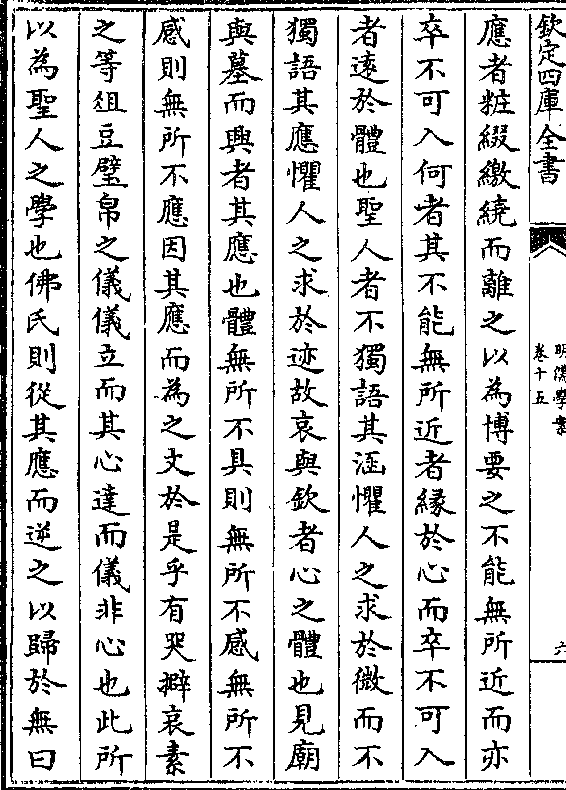 欽定四庫全書
明儒學案
卷十五
六
應者粧綴繳繞而離之以為博要之不能無所近而亦
卒不可入何者其不能無所近者緣於心而卒不可入
者遠於體也聖人者不獨語其涵懼人之求於微而不
獨語其應懼人之求於迹故哀與欽者心之體也見廟
與墓而興者其應也體無所不具則無所不感無所不
感則無所不應因其應而為之文於是乎有哭擗哀素
之等俎豆璧帛之儀儀立而其心達而儀非心也此所
以為聖人之學也佛氏則從其應而逆之以歸於無曰